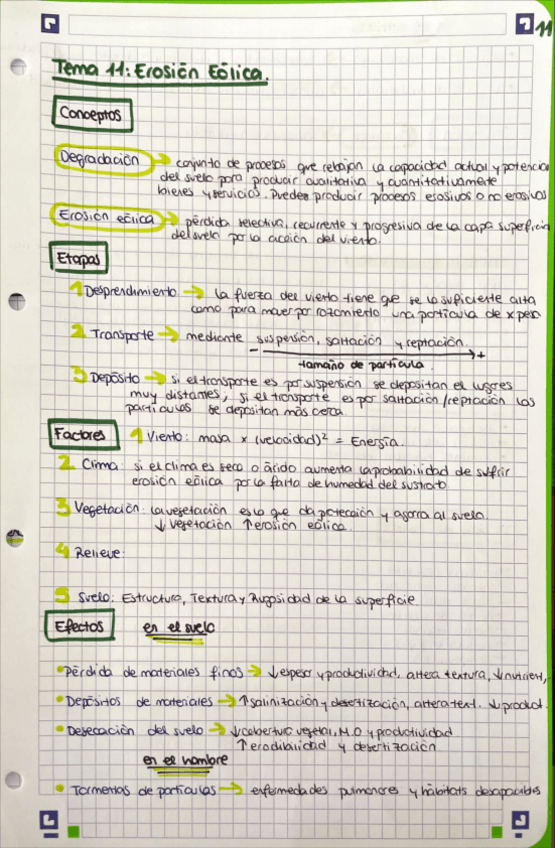 11
Tema 11: Erosión Eólica.
Conceptos
Degradación → conjunto de procesos que rebajan la capacidad actual y potencia
del suelo para producir cualitativa y cuantitativamente
bienes y servicios. Pueden producir procesos erosivos o no erosivos
Erosión eólica → pérdida selectiva, recurrente y progresiva de la capa superficia
del suelo por la acción del viento.
Etapas
1 Desprendimiento → la fuerza del viento tiene que se lo suficiente alta
como para mover por rozamiento una partícula de x peso
2 Transporte → mediante suspensión, saltación y reptación.
- +
tamaño de partícula
3 Depósito → si el transporte es por suspensión se depositan el lugares
muy distantes, si el transporte es por saltación/reptación las
partículas se depositan más cerca.
Factores 1 Viento: masa x (velocidad)² = Energía.
2 Clima: si el clima es seco o árido aumenta la probabilidad de sufrir
erosión eólica por la falta de humedad del sustrato
3 Vegetación: la vegetación es lo que da protección y agarra al suelo.
↓ vegetación ↑ erosión eólica.
4 Relieve:
5 Suelo: Estructura, Textura y Rugosidad de la superficie
Efectos en el suelo
• Pérdida de materiales finos → ↓ espesor y productividad, altera textura, ↓ nutrient,
• Depósitos de materiales → ↑ salinización y desertización, altera text. ↓ product.
• Desecación del suelo → ↓ cobertura vegetal, M.O y productividad
↑ erodibilidad y desertización
en el hombre
• Tormentas de partículas → enfermedades pulmonares y hábitats desapacibles